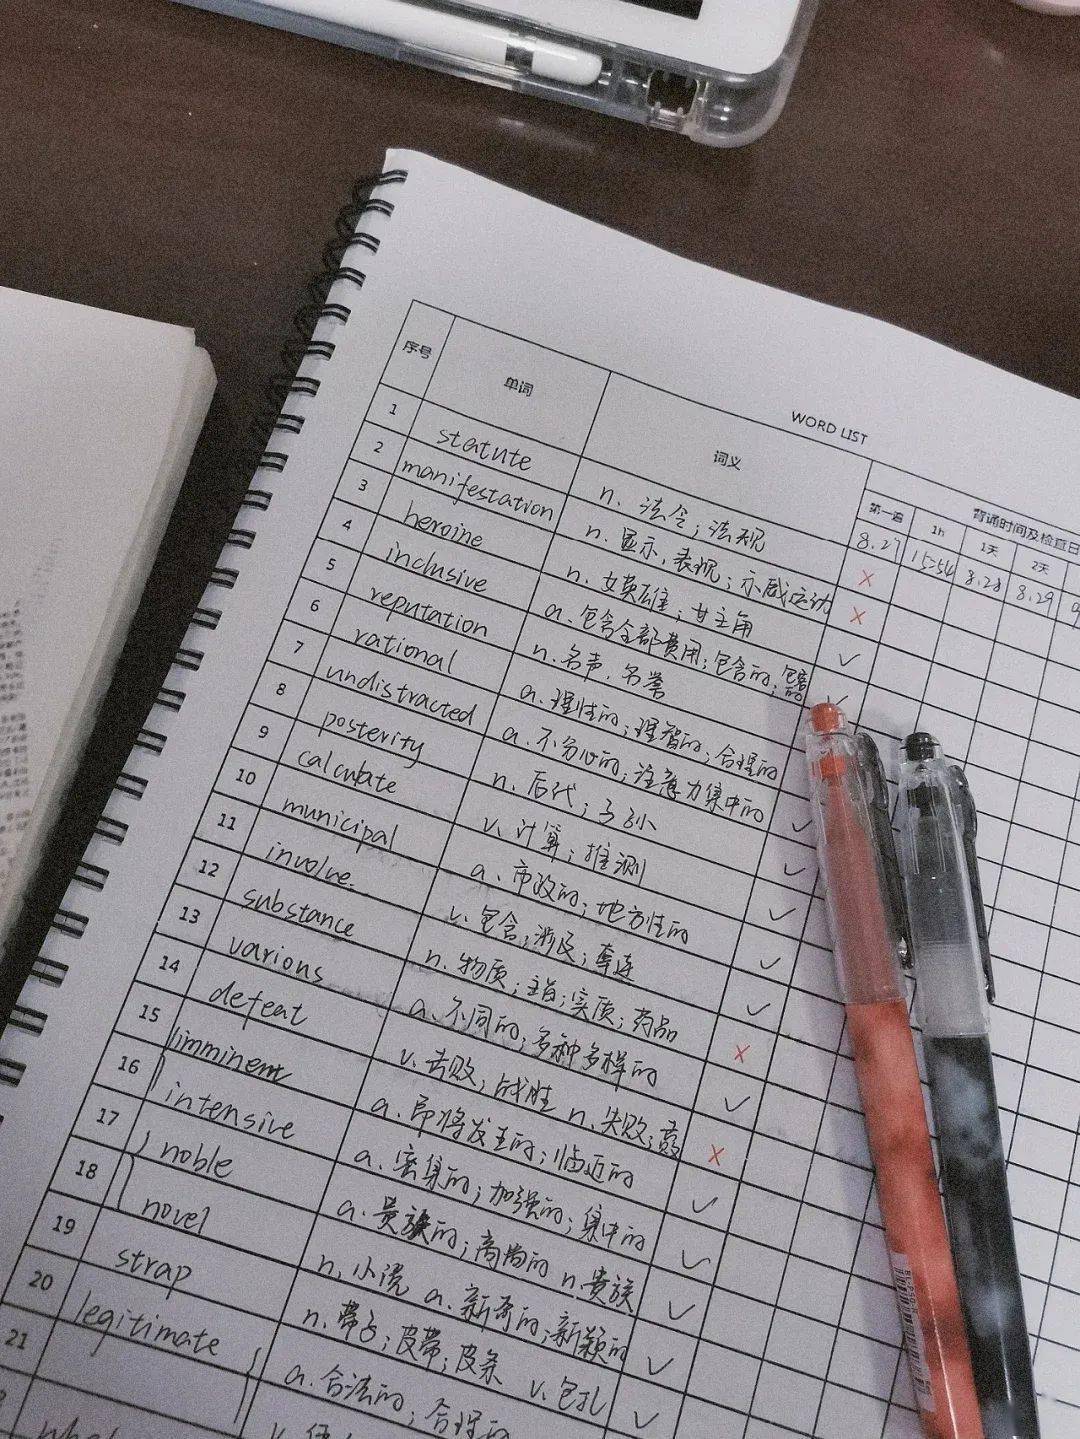 WORD LIST
序号 单词 词义 背诵时间及检查日
第一遍 1h 1天 2天
8.27 15:54 8.28 8.29
1 statute n. 法令；法规 ×
2 manifestation n. 显示，表现；示威运动 ×
3 heroine n. 女英雄；女主角 ✓
4 inclusive a. 包含全部费用；包含的；包容的 ✓
5 reputation n. 名声，名誉
6 rational a. 理性的；理智的；合理的
7 undistracted a. 不分心的；注意力集中的 ✓
8 posterity n. 后代；子孙 ✓
9 calculate v. 计算；推测 ✓
10 municipal a. 市政的；地方性的 ✓
11 involve v. 包含；涉及；牵连 ✓
12 substance n. 物质；主旨；实质；药品 ×
13 various a. 不同的；多种多样的 ✓
14 defeat v. 击败；战胜 n. 失败； ×
15 imminent a. 即将发生的；临近的 ✓
16 intensive a. 密集的；加强的；集中的 ✓
17 noble a. 贵族的；高尚的 n. 贵族 ✓
18 novel n. 小说 a. 新奇的；新颖的 ✓
19 strap n. 带子；皮带；皮条 v. 包扎 ✓
20 legitimate a. 合法的；合理的
21 v.